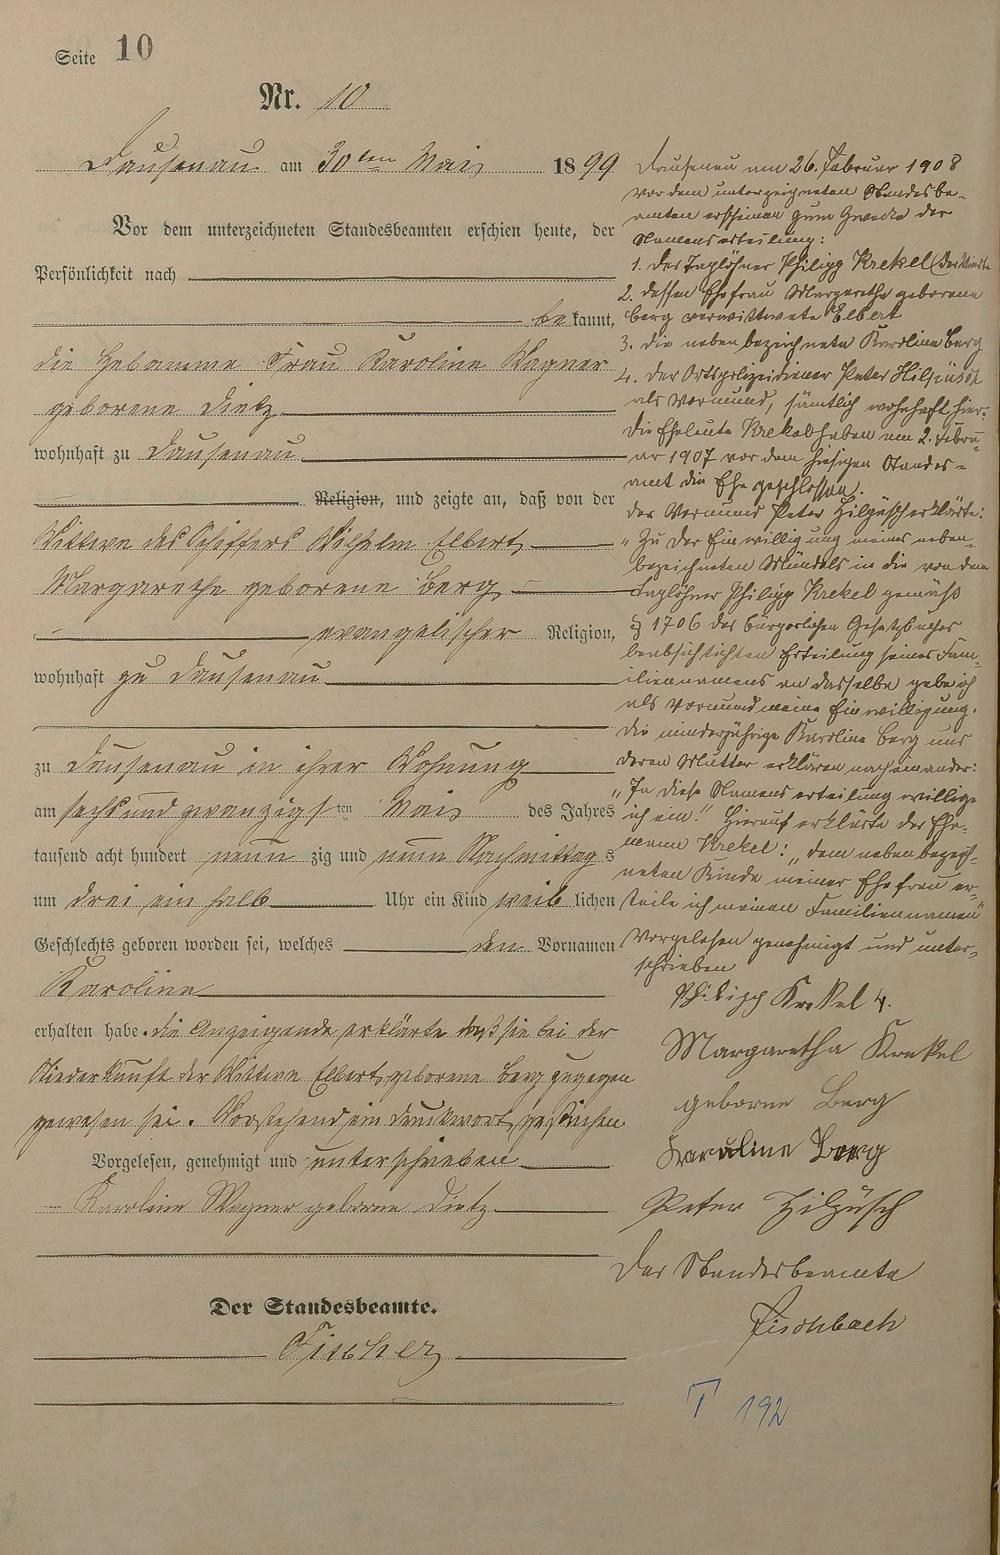 Seite 10
Nr. 10
Dausenau am 30ten Mai 1899
Vor dem unterzeichneten Standesbeamten erschien heute, der
Persönlichkeit nach
be kannt,
die Hebamme Frau Karoline Wagner
geborene Dietz
wohnhaft zu Dausenau
Religion, und zeigte an, daß von der
Wittwe des Schiffers Wilhelm Elbert
Margarethe geborene Berg
evangelischer Religion,
wohnhaft zu Dausenau
zu Dausenau in ihrer Wohnung
am sechs und zwanzigsten Mai des Jahres
tausend acht hundert neun zig und neun Nachmittag s
um drei ein halb Uhr ein Kind weib lichen
Geschlechts geboren worden sei, welches den Vornamen
Karoline
erhalten habe. die Anzeigende erklärte daß sie bei der
Niederkunft der Wittwe Elbert geborene Berg zugegen
gewesen sei. Vorstehend ein Druckwort gestrichen
Vorgelesen, genehmigt und unterschrieben
Karoline Wagner geborne Dietz
Der Standesbeamte.
Fischer
Dausenau am 26. Februar 1908
vor dem unterzeichneten Standesbe-
amten erscheinen zum Zwecke der
Namenserteilung:
1. der Taglöhner Philipp Krekel
2. dessen Ehefrau Margaretha geborene
Berg verwittwete Elbert
3. die nebenbezeichnete Karoline Berg
4. der Ortspolizeidiener Peter Hilpüsch
als Vormund, sämtlich wohnhaft hier.
Die Eheleute Krekel haben am 2. Febru-
ar 1907 vor dem hiesigen Standes-
amt die Ehe geschlossen.
der Vormund Peter Hilpüsch erklärte:
"Zu der Einwilligung meines neben-
bezeichneten Mündels in die von dem
Taglöhner Philipp Krekel gemäß
§ 1706 des bürgerlichen Gesetzbuches
beabsichtichten Erteilung seines Fam-
iliennamens an dasselbe gebe ich
als Vormund meine Einwilligung.
Die minderjährige Karoline Berg und
deren Mutter erklären nacheinander:
"In diese Namenserteilung willige
ich ein." Hierauf erklärte der Ehe-
mann Krekel: "dem nebenbezeich-
neten Kinde meiner Ehefrau er-
teile ich meinen Familiennamen"
Vorgelesen genehmigt und unter-
schrieben
Philipp Krekel 4.
Margaretha Krekel
geborne Berg
Karoline Berg
Peter Hilpüsch
Der Standesbeamte
Fischbach
T 192